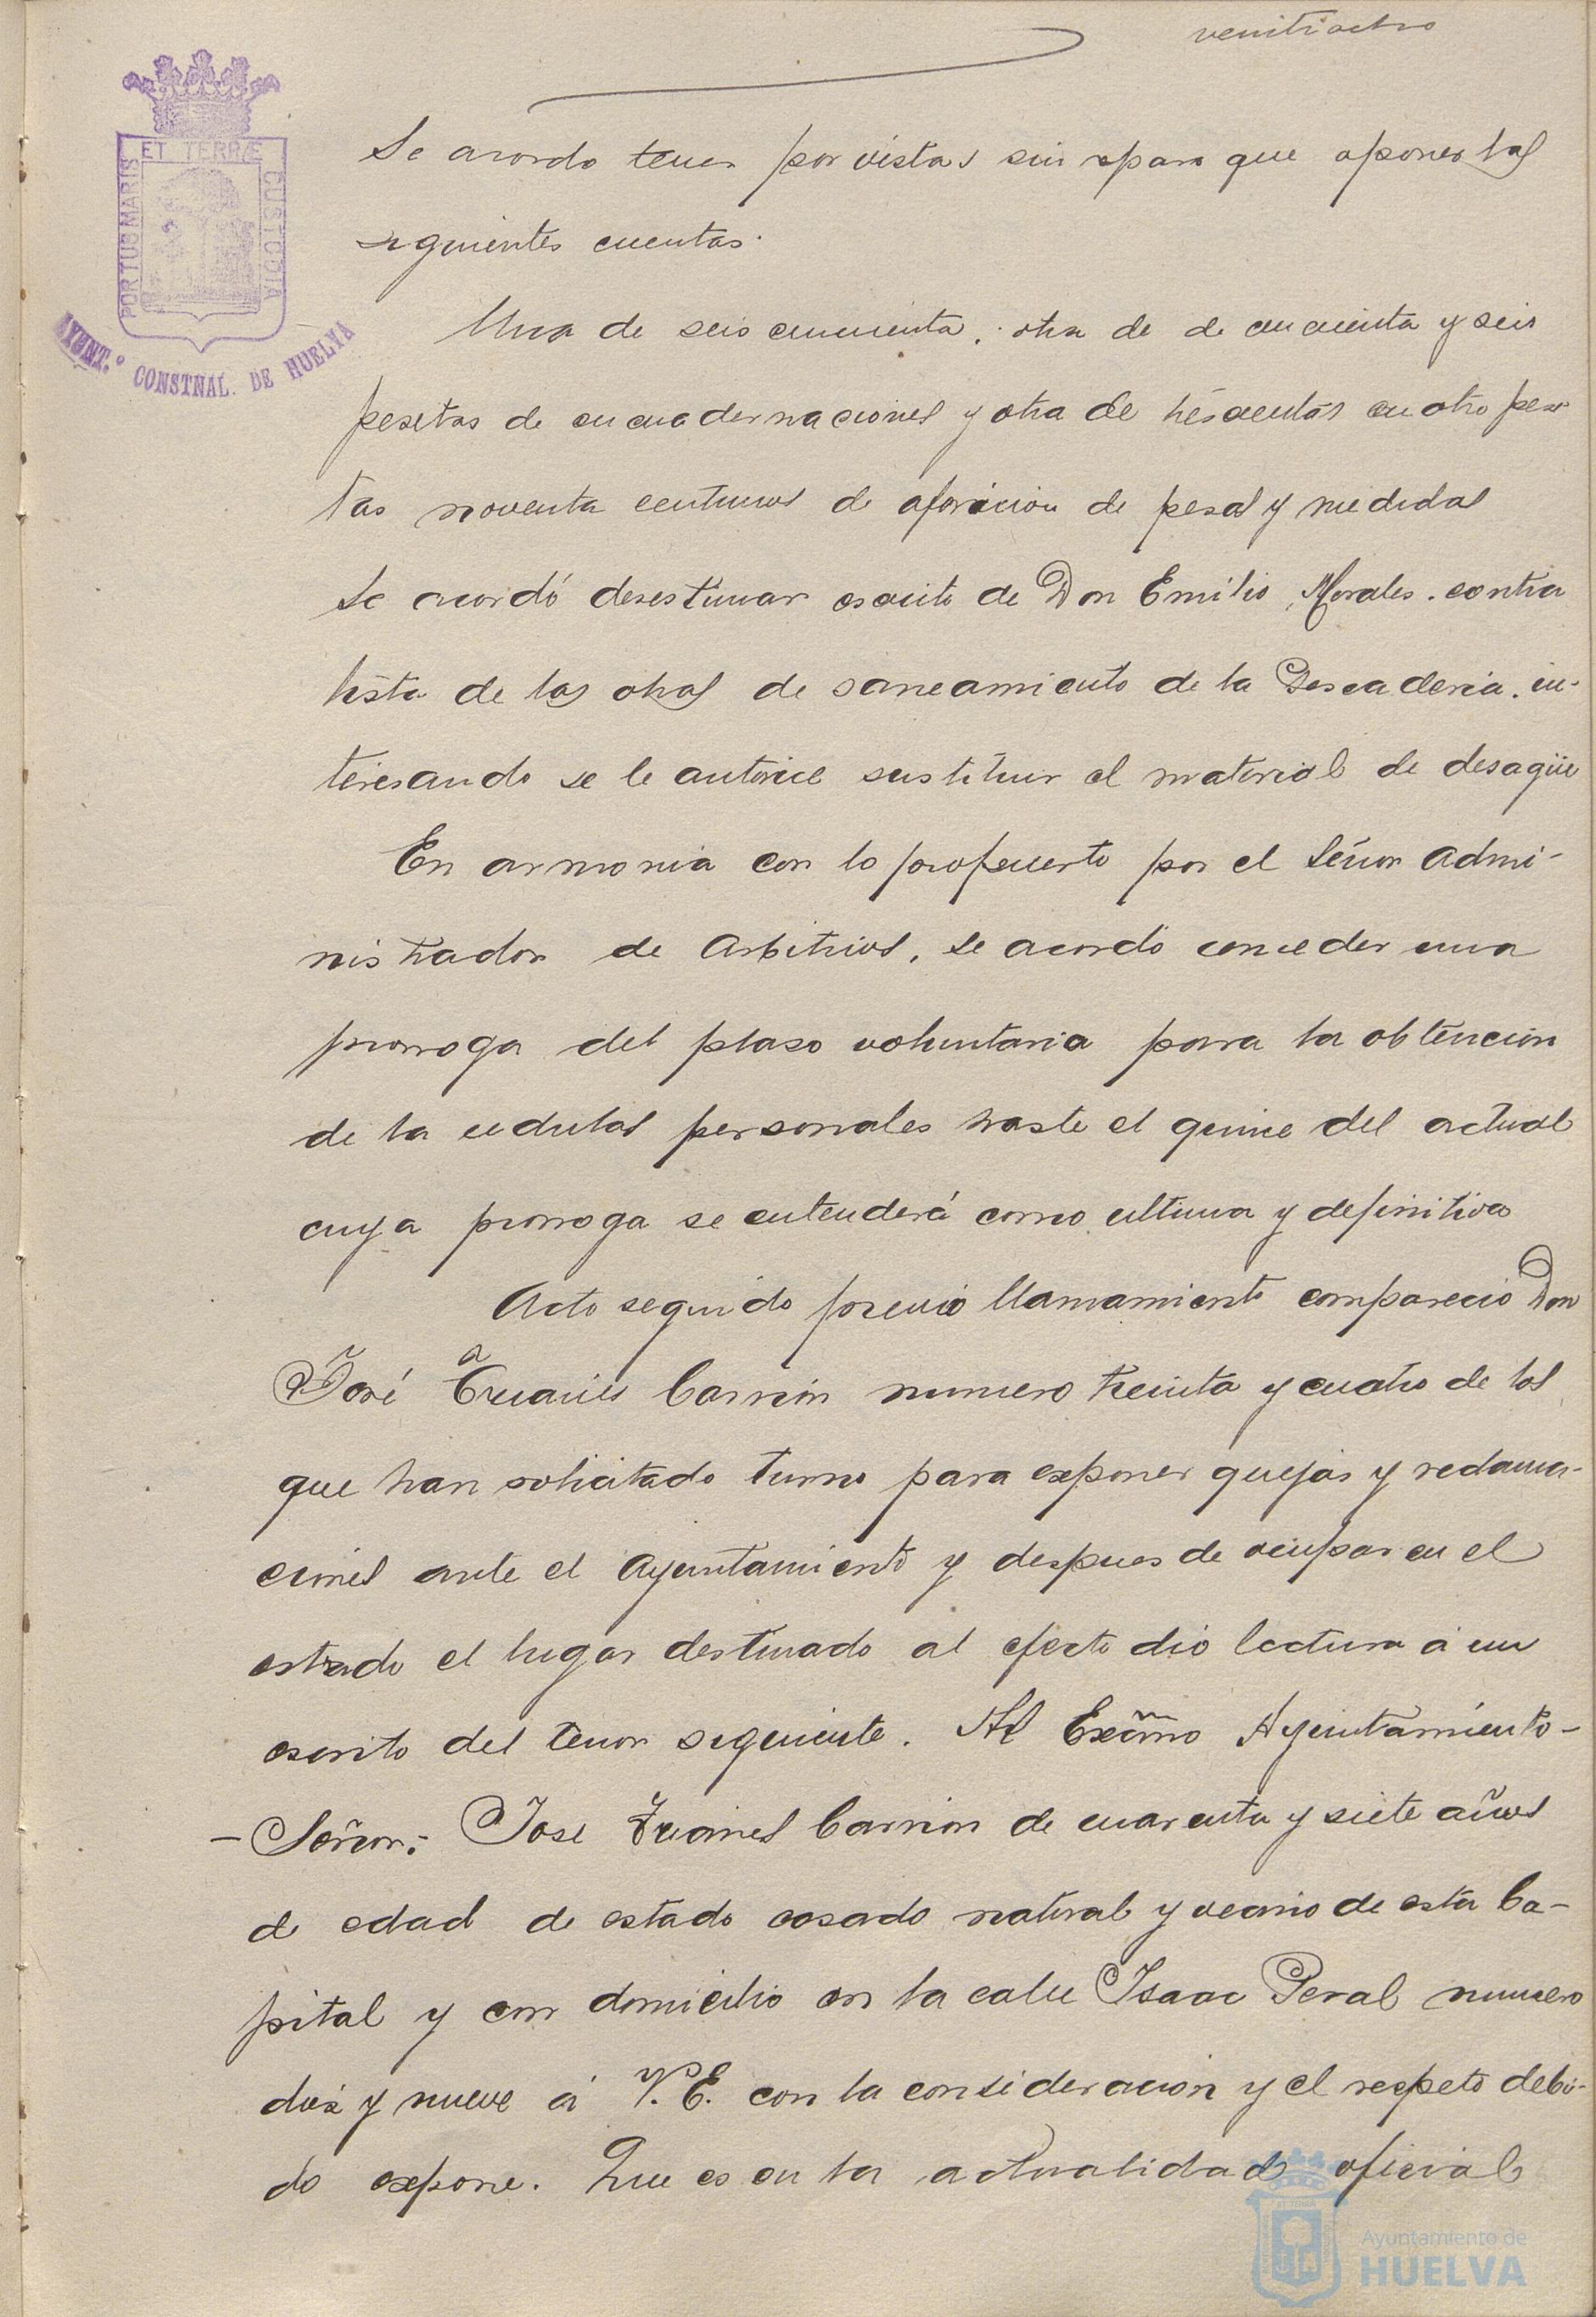 veintiocho
PORTUS MARIS ET TERRÆ CUSTODIA
AYUNT.º CONSTNAL. DE HUELVA
Se acordo tener por vistas sin reparo que oponer las
siguientes cuentas.
Una de seis cincuenta, otra de de cincuenta y seis
pesetas de encuadernaciones y otra de trescientas cuatro pese
tas noventa centimos de aforicion de pesas y medidas
Se acordó desestimar escrito de Don Emilio Morales. contra
tista de las obras de saneamiento de la Pescaderia. in-
teresando se le autorice sustituir el material de desagüe
En armonia con lo propuesto por el Señor Admi-
nistrador de Arbitrios, se acordó conceder una
prorroga del plaso voluntaria para la obtencion
de la cedulas personales haste el quince del actual
cuya prorroga se entenderá como ultima y definitiva
Acto seguido previo llamamiento comparecio Don
José Carrion numero treinta y cuatro de los
que han solicitado turno para exponer quejas y reclama-
ciones ante el Ayuntamiento y despues de ocupar en el
estrado el lugar destinado al efecto dió lectura á un
escrito del tenor siguiente. Al Excmo Ayuntamiento-
- Señor: Jose Carrion de cuarenta y siete años
de edad de estado casado natural y vecino de esta Ca-
pital y con domicilio en la calle Isaac Peral numero
diez y nueve á V. E. con la consideracion y el respeto debi-
do expone. Que es en la actualidad oficial
Ayuntamiento de
HUELVA